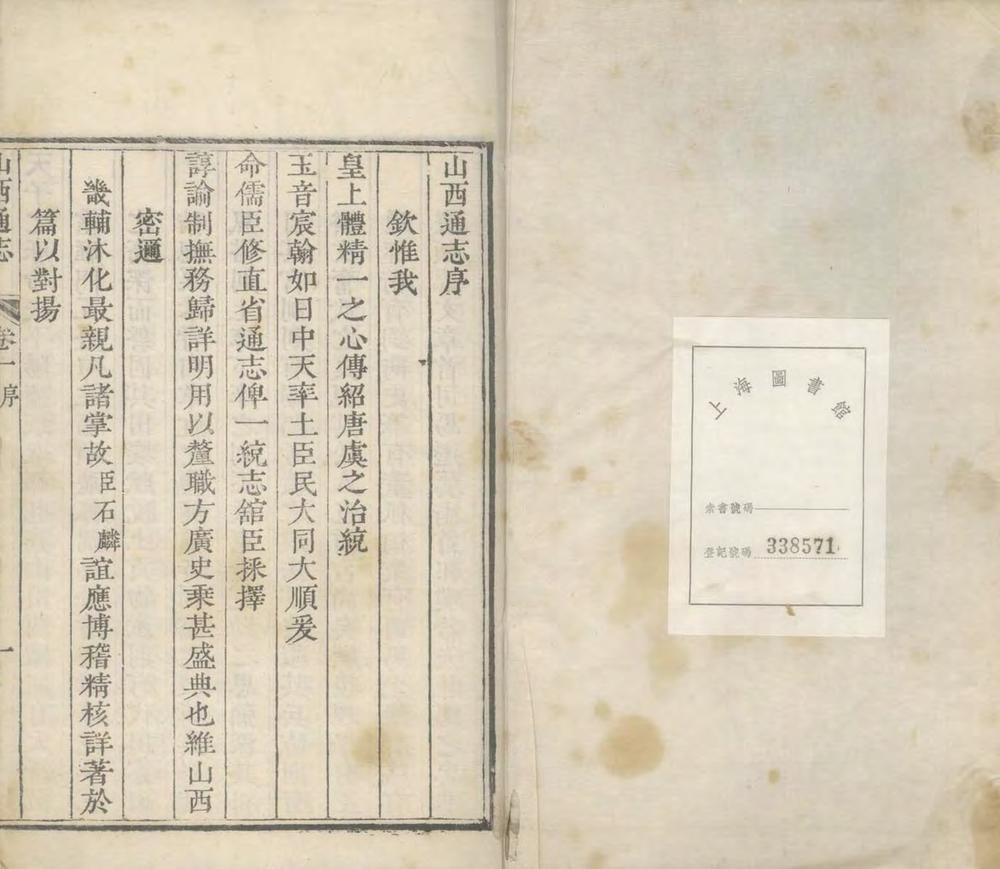 山西通志序
欽惟我
皇上體精一之心傳紹唐虞之治統
玉音宸翰如日中天率土臣民大同大順爰
命儒臣修直省通志俾一統志舘臣採擇
諄諭制撫務歸詳明用以釐職方廣史乘甚盛典也維山西
密邇
畿輔沐化最親凡諸掌故臣石麟誼應博稽精核詳著於
篇以對揚
山西通志 卷一 序 一
上海圖書館
索書號碼
登記號碼 338571